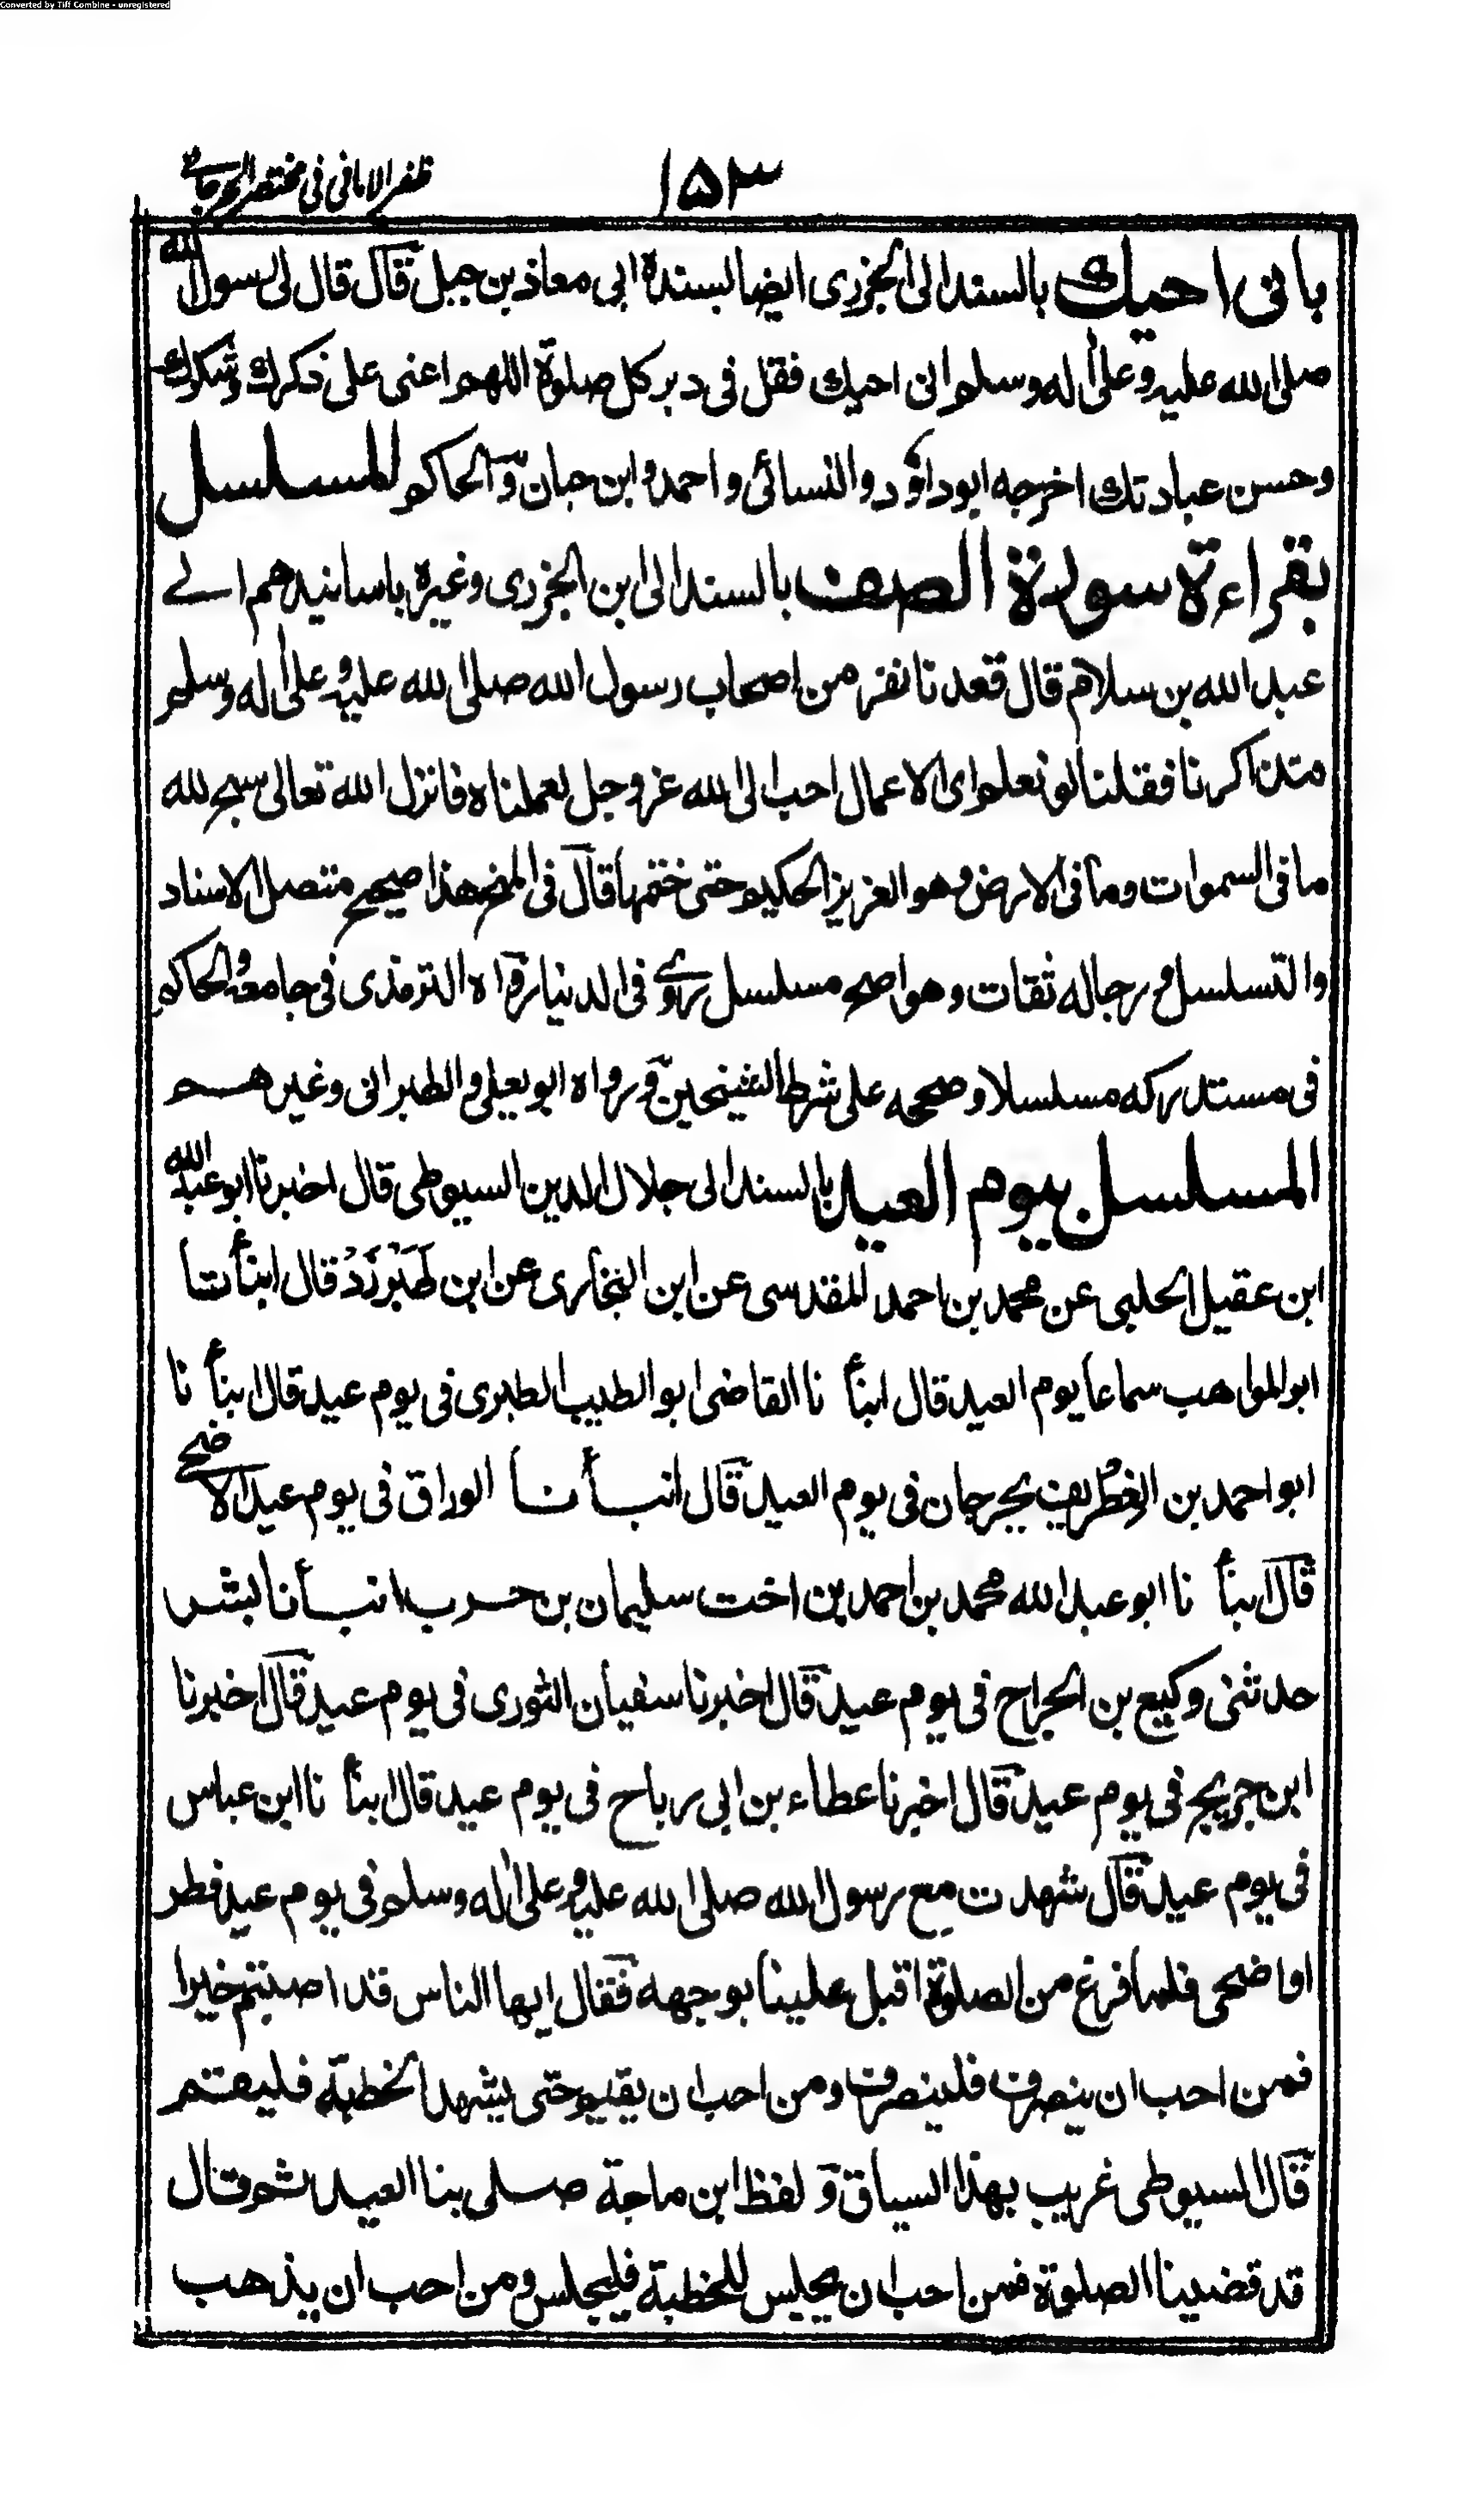 Converted by Tiff Combine - unregistered
١٥٣ ظفر الامانی فی مختصر الجرجانے
بانی احبك بالسند الی الجزری ایضا بسنده ابی معاذ بن جبل قال قال لی رسول الله
صلی الله علیه وعلی اله وسلم انی احبك فقل فی دبر كل صلوة اللهم اعنی علی ذكرك وشكرك
وحسن عبادتك اخرجه ابو داؤد والنسائی واحمد وابن حبان والحاكم المسلسل
بقراءة سورة الصف بالسند الی ابن الجزری وغیره باسانیدهم الے
عبد الله بن سلام قال قعدنا نفر من اصحاب رسول الله صلی الله علیه وعلی اله وسلم
متذاكرنا فقلنا لو نعلم ای الاعمال احب الی الله عز وجل لعملناه فانزل الله تعالی سبح لله
ما فی السموات وما فی الارض وهو العزیز الحكیم حتی ختمها قال فی المنح هذا صحیح متصل الاسناد
والتسلسل ورجاله ثقات وهو اصح مسلسل روے فی الدنیا رواه الترمذی فی جامعه والحاكم
فی مستدركه مسلسلا وصححه علی شرط الشیخین ورواه ابو یعلی والطبرانی وغیرهم
المسلسل بیوم العید بالسند الی جلال الدین السیوطی قال اخبرنا ابو عبد الله
ابن عقیل الحلبی عن محمد بن احمد المقدسی عن ابن البخاری عن ابن طَبَرْزَدْ قال انبأنا
ابو المواهب سماعا یوم العید قال انبأ نا القاضی ابو الطیب الطبری فی یوم عید قال انبأ نا
ابو احمد بن الغِطْریف بجرجان فی یوم العید قال انبأنا الوراق فی یوم عید الاضحے
قال انبأ نا ابو عبد الله محمد بن احمد بن اخت سلیمان بن حرب انبأنا بشر
حدثنی وكیع بن الجراح فی یوم عید قال اخبرنا سفیان الثوری فی یوم عید قال اخبرنا
ابن جریج فی یوم عید قال اخبرنا عطاء بن ابی رباح فی یوم عید قال انبأ نا ابن عباس
فی یوم عید قال شهدت مع رسول الله صلی الله علیه وعلی اله وسلم فی یوم عید فطر
او اضحی فلما فرغ من الصلوة اقبل علینا بوجهه فقال ایها الناس قد اصبتم خیرا
فمن احب ان ینصرف فلینصرف ومن احب ان یقیم حتی یشهد الخطبة فلیقم
قال السیوطی غریب بهذا السیاق ولفظ ابن ماجة صلی بنا العید ثم قال
قد قضینا الصلوة فمن احب ان یجلس للخطبة فلیجلس ومن احب ان یذهب